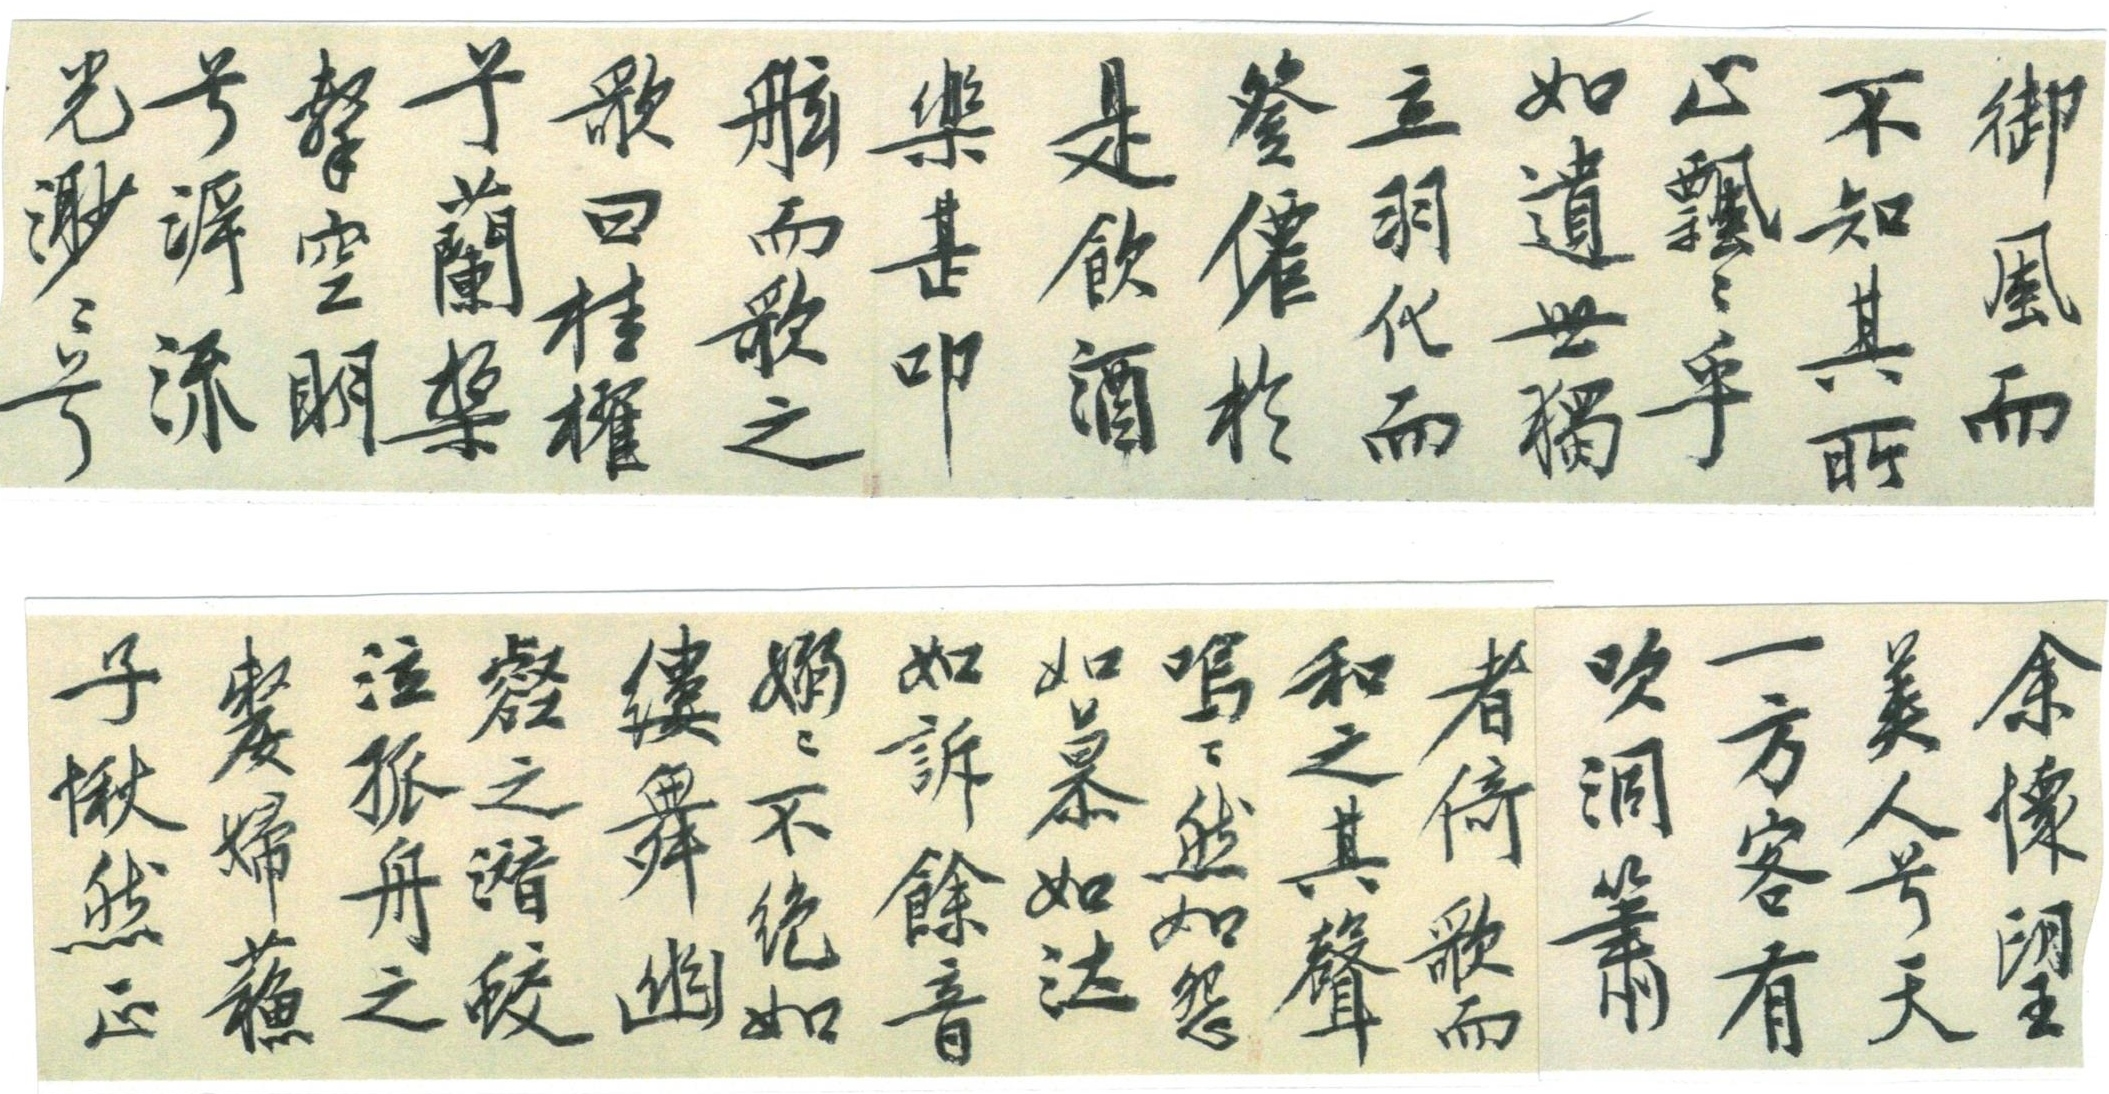 御風而
不知其所
止飄〻乎
如遺世獨
立羽化而
登僊於
是飲酒
樂甚叩
舷而歌之
歌曰桂櫂
兮蘭槳
擊空明
兮泝流
光渺〻兮
余懷望
美人兮天
一方客有
吹洞簫
者倚歌而
和之其聲
嗚〻然如怨
如慕如泣
如訴餘音
嫋〻不絕如
縷舞幽
壑之潛蛟
泣孤舟之
嫠婦蘓
子愀然正